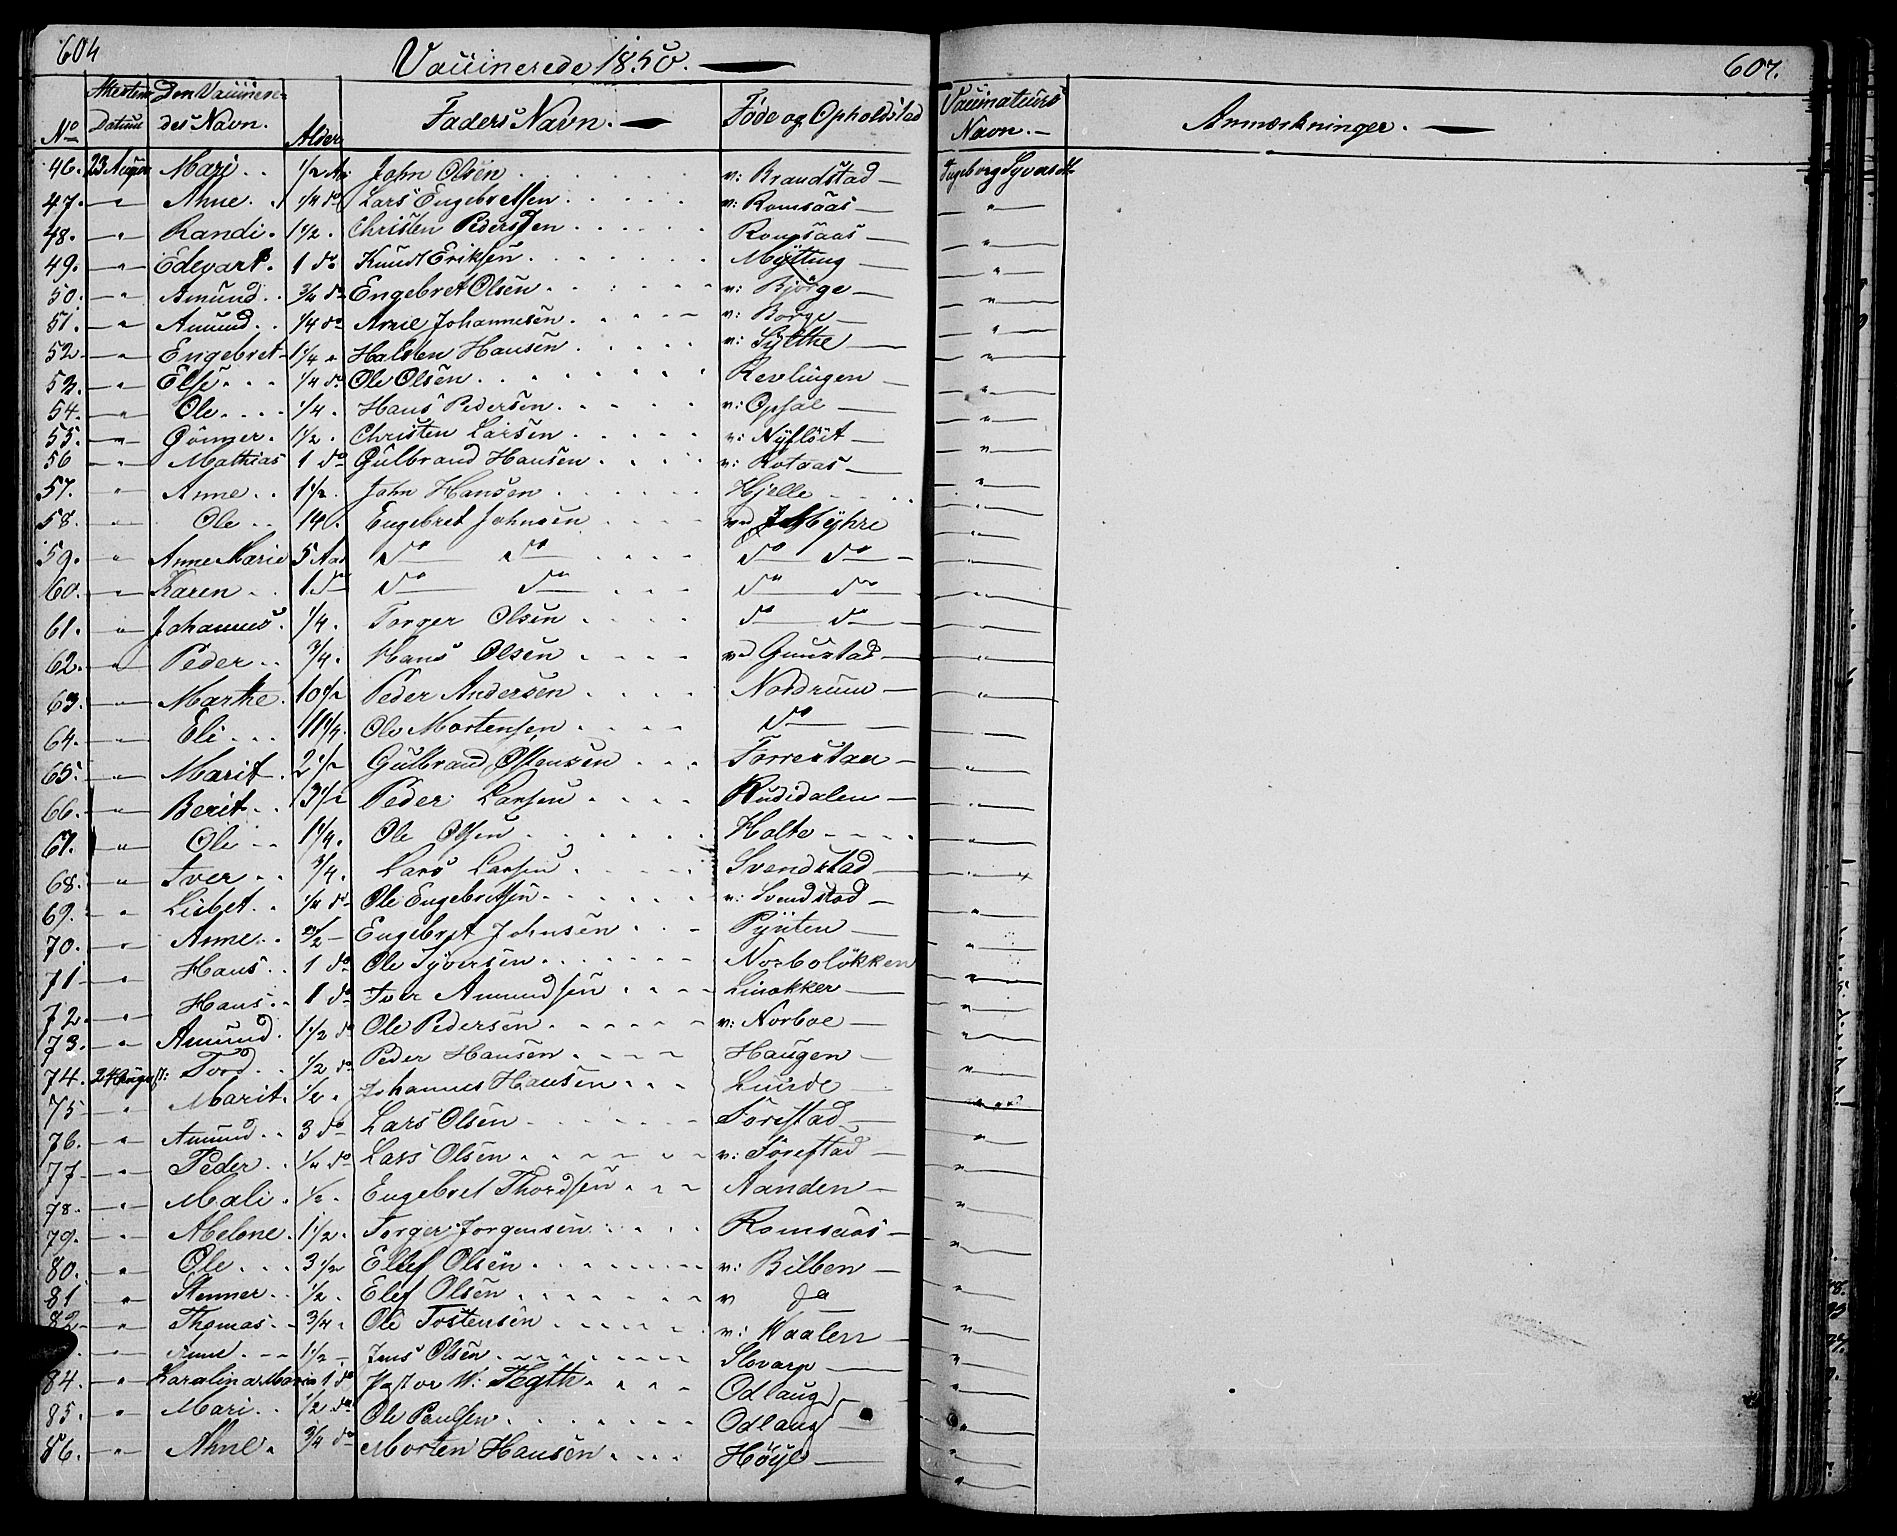 604
Vaccinerede 1850.
607.
No Attestens Datum Den Vaccineredes Navn. Alder Faders Navn. Føde og Opholdstad Vaccinateurs Navn. Anmærkninger.
46. 23 Mari 1/2 John Olsen v: Brandstad Ingeborg Syversdt
47. " Anne 1/4 do Lars Engebretsen v: Romsaas "
48. " Randi 1 1/2 Christen Pedersen Romsaas "
49. " Edevart 1 do Knudt Eriksen Mytting "
50. " Amund 3/4 do Engebret Olsen v: Bjørge "
51. " Amund 1/4 do Arne Johannesen v: Borge "
52. " Engebret 1 1/4 " Halsten Hansen v: Sylthe "
53. " Else 1/4 do Ole Olsen Revlingen "
54. " Ole 1/4 Hans Pedersen v: Opsal "
55. " Gønner 1 1/2 Christen Larsen v: Nyfløit "
56 " Mathias 1 do Gulbrand Hansen v: Rotaas "
57. " Anne 1 1/2 John Hansen Hjelle "
58. " Ole 14 Engebret Johnsen Myhre "
59. " Anne Marie 5 Aar do do do do "
60. " Karen 1 do do do do "
61. " Johannes 1/4 Torger Olsen do do "
62. " Peder 3/4 Hans Olsen vd Gunstad "
63. " Marthe 10 1/2 Peder Andersen Nordrum "
64. " Eli 11 1/4 Ole Mortensen do "
65. " Marit 2 1/2 Gulbrand Østensen "
66. " Berit 3 1/2 Peder Larsen Rudidalen "
67. " Ole 1 1/4 Ole Olsen Holte "
68. " Iver 3/4 Lars Larsen Svendstad "
69. " Lisbet 1/4 do Ole Engebretsen v: Svendstad "
70. " Anne Engebret Johnsen Pynten "
71 " Hans 1 do Ole Syversen Norboløkken "
72. " Hans 1 do Iver Amundsen Linakker "
73. " Amund 1 1/2 do Ole Pedersen v: Norboe "
74. 24 August: Tord 1/2 do Peder Hansen Haugen "
75 " Marit 1/2 Johannes Hansen Lunde "
76. " Amund 3 do Lars Olsen Forestad "
77 " Peder 1/4 do Lars Olsen v: Forestad "
78. " Mali 1/2 Engebret Thordsen Aanden "
79. " Abelone 1 1/2 Torger Jorgensen Romsaas "
80. " Ole 3 1/2 Ellef Olsen v: Bilben "
81 " Stenner 1/2 Elef Olsen v do "
82 " Thomas 3/4 Ole Tostensen v: Waalen "
" 1 1/2 Jens Olsen Slovarp "
84. " Karalina Maria 1 do Pastor W: Hegth Odlaug "
85. " Mari 1/2 do Ole Paulsen Odlaug "
86. " Anne 3/4 do Morten Hansen Høye "